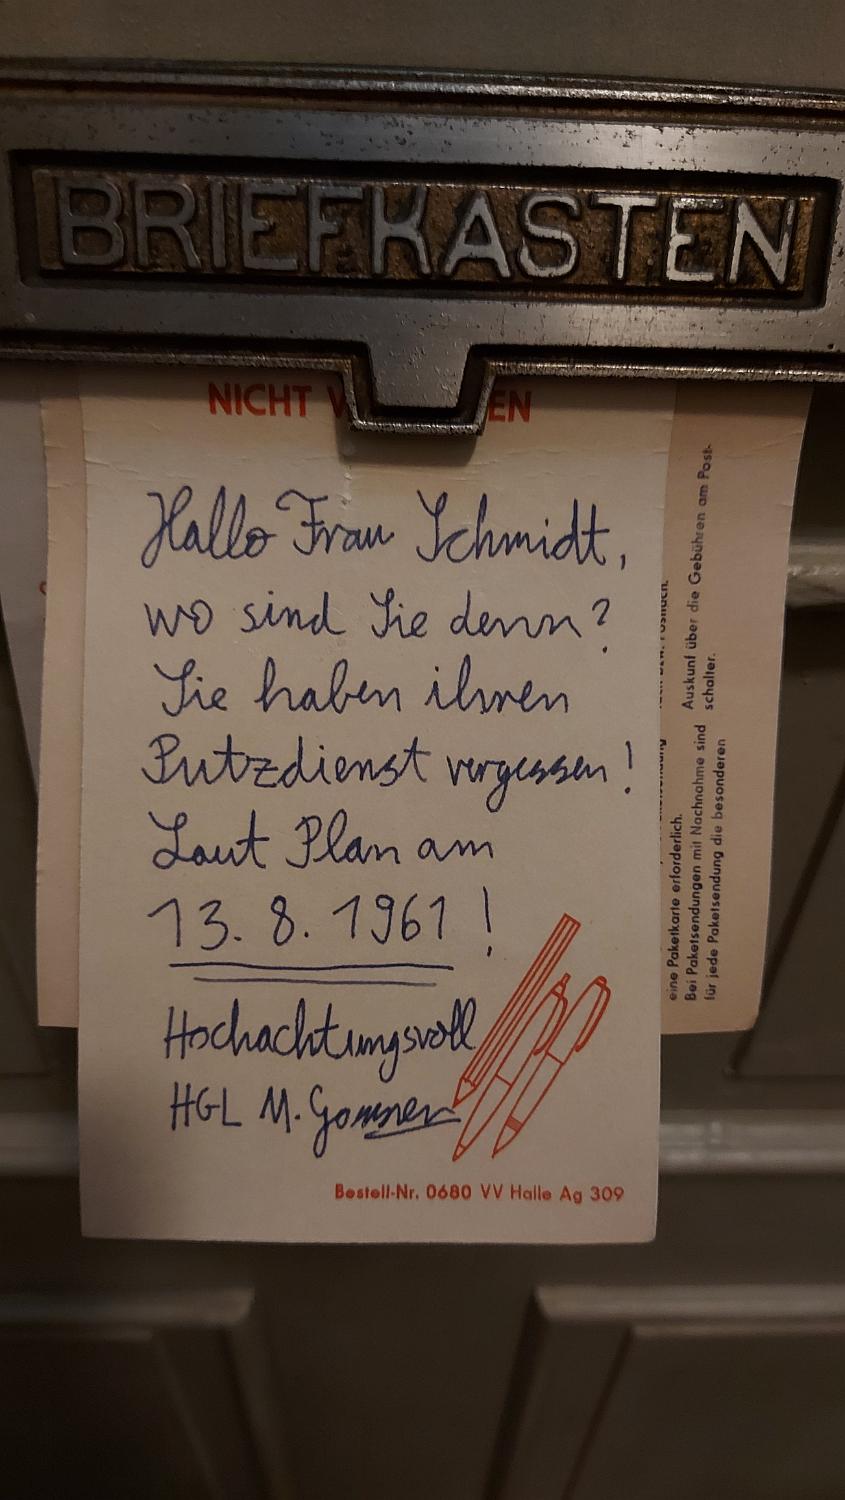 BRIEFKASTEN
NICHT
Hallo Frau Schmidt,
wo sind Sie denn?
Sie haben ihren
Putzdienst vergessen!
Laut Plan am
13. 8. 1961!
Hochachtungsvoll
HGL M.
Bestell-Nr. 0680 VV Halle Ag 309
eine Paketkarte erforderlich.
Bei Paketsendungen mit Nachnahme sind
für jede Paketsendung die besonderen
Auskunft über die Gebühren am Post-
schalter.